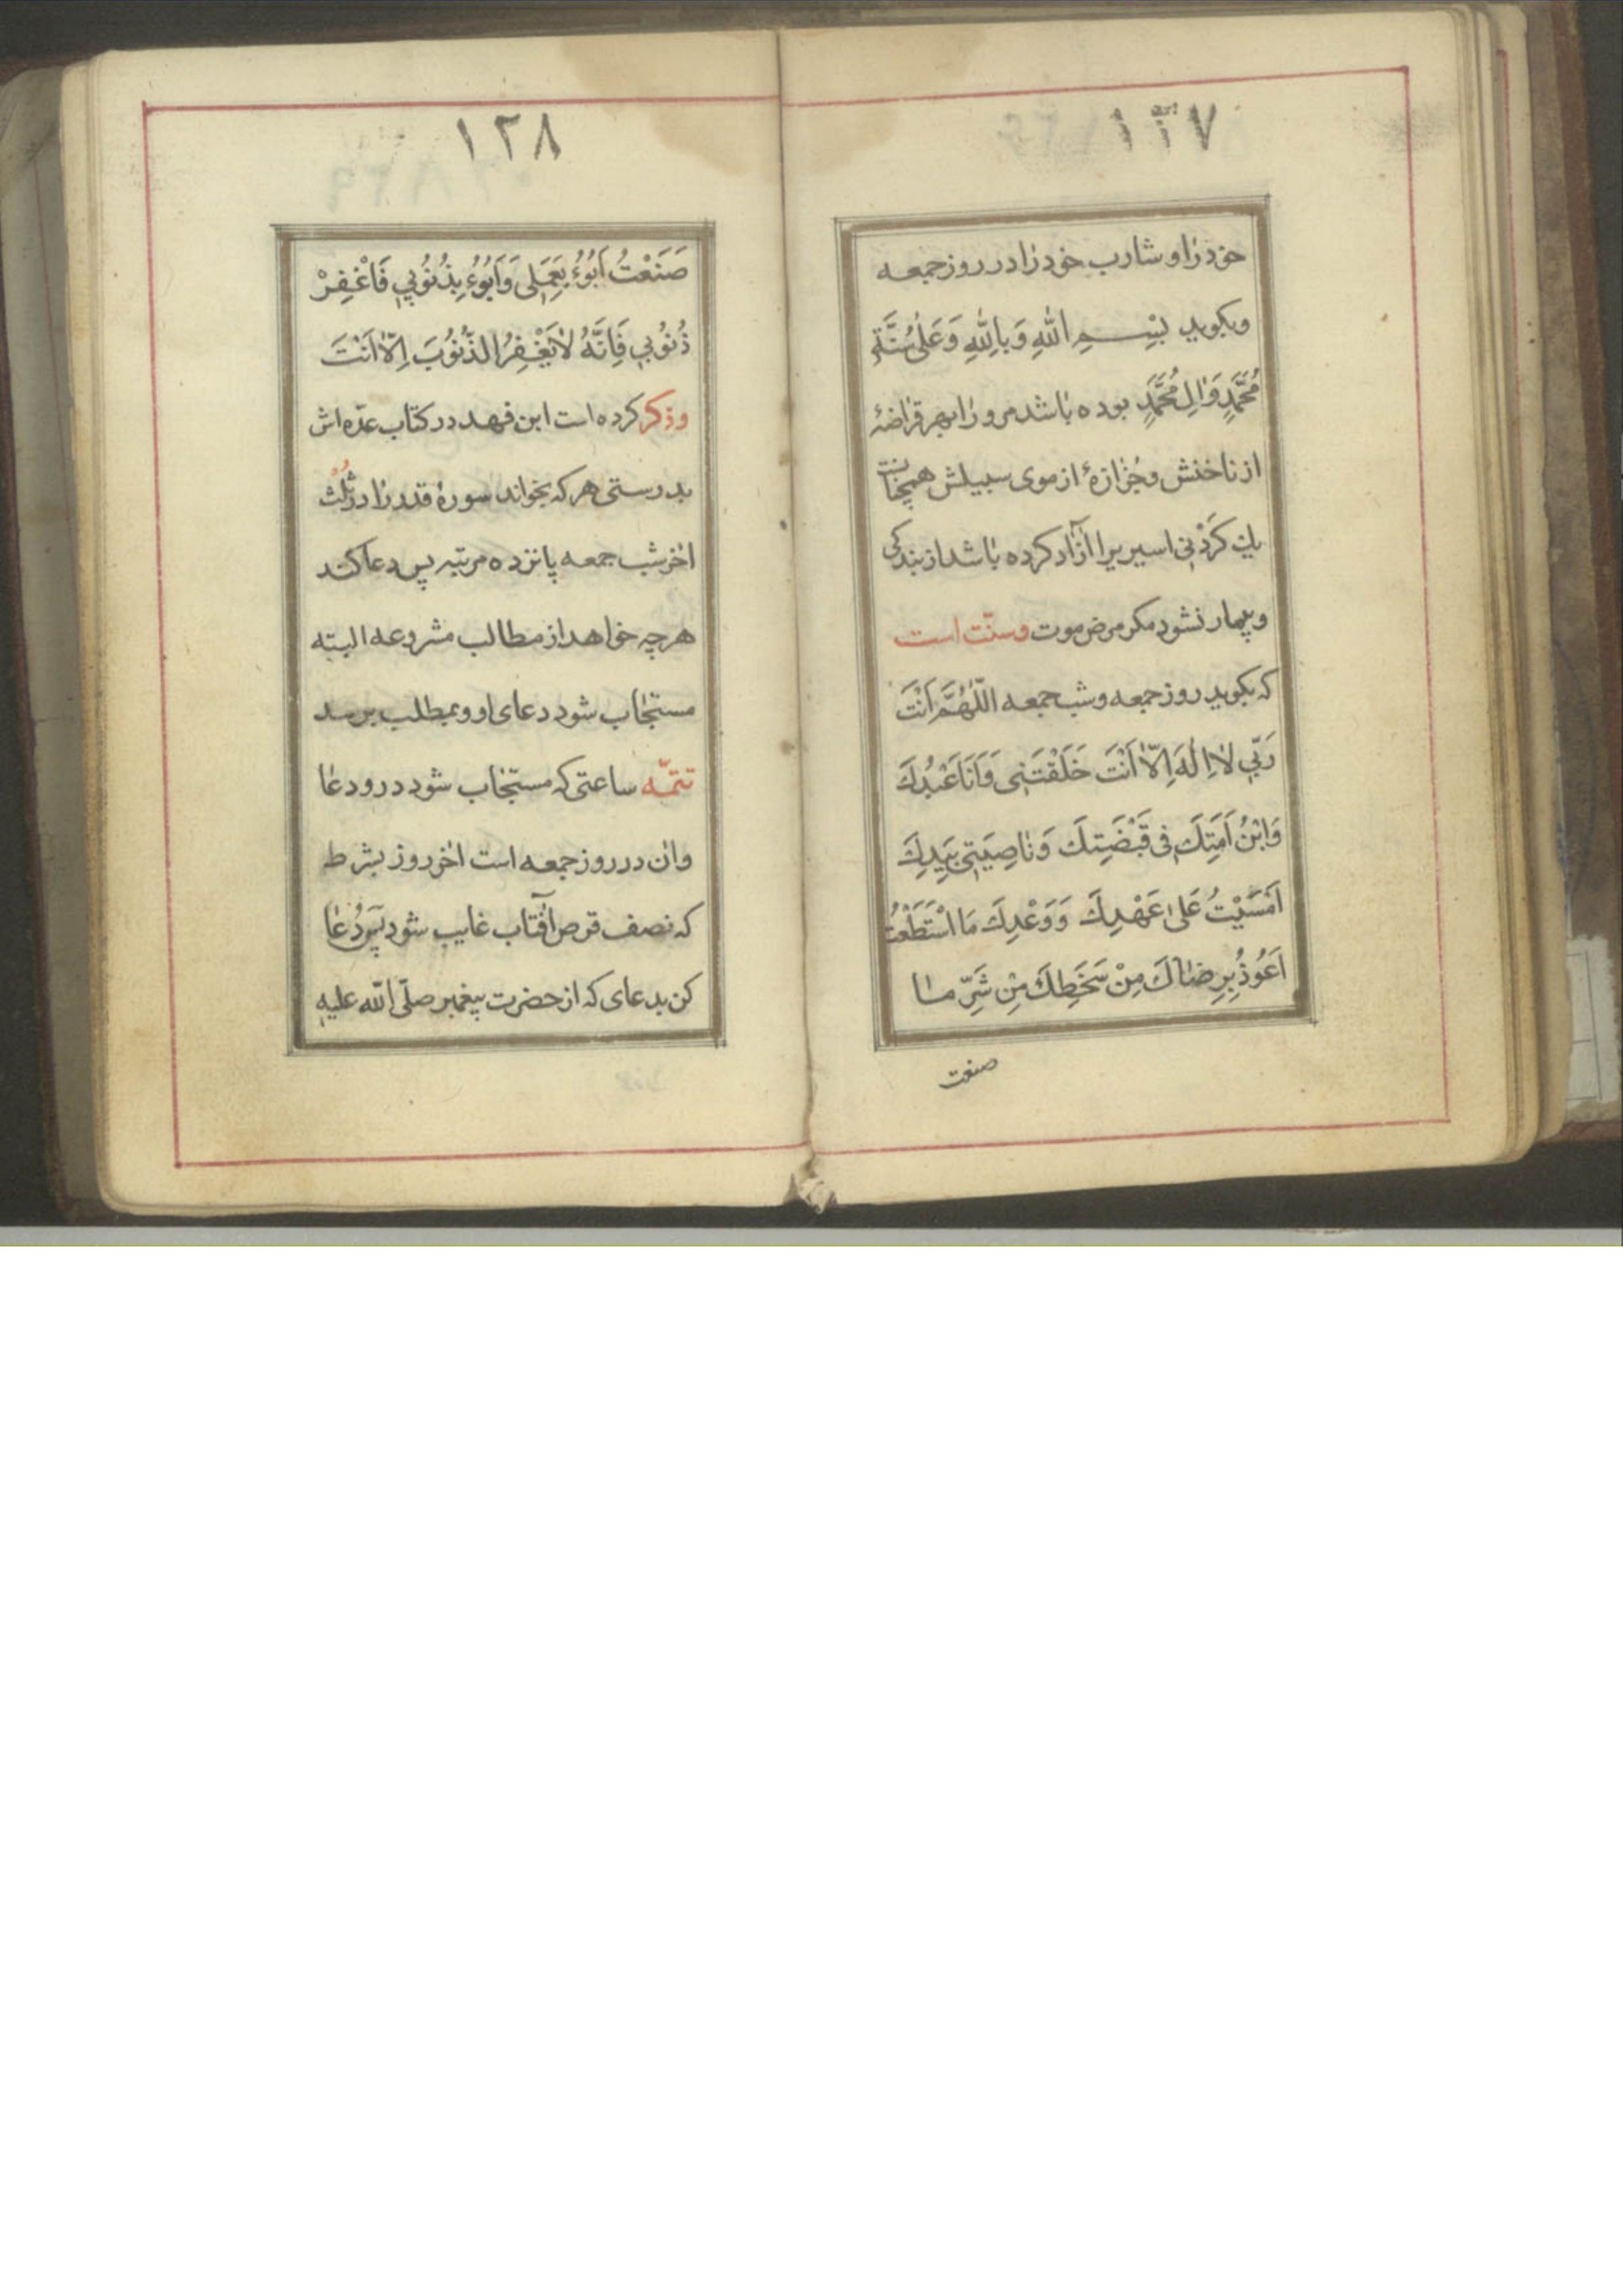 ۱۲۷
خود را و شارب خود را در روز جمعه
وبکوید بِسْمِ اللّٰهِ وَبِاللّٰهِ وَعَلىٰ سُنَّةِ
مُحَمَّدٍ وَاٰلِ مُحَمَّدٍ بوده باشد مر و را بهر قراضهٔ
از ناخنش و جُزازهٔ از موی سبیلش همچنانست
یك کَرْدَنی اسیریرا آزاد کرده باشد از بندکی
و بیمار نشود مکر مرض موت و سنّت است
که بکوید روز جمعه و شب جمعه اَللّٰهُمَّ اَنْتَ
رَبّي لٰا اِلٰهَ اِلّٰا اَنْتَ خَلَقْتَنِی وَاَنَا عَبْدُكَ
وَابْنُ اَمَتِكَ فی قَبْضَتِكَ وَنٰاصِيَتِی بِيَدِكَ
اَمْسَيْتُ عَلىٰ عَهْدِكَ وَوَعْدِكَ مَا اسْتَطَعْتُ
اَعُوذُ بِرِضٰاكَ مِنْ سَخَطِكَ مِنْ شَرِّ مٰا
صنعت
۱۲۸
صَنَعْتُ اَبُوءُ بِعَمَلی وَاَبُوءُ بِذُنُوبي فَاغْفِرْ
ذُنُوبي فَاِنَّهُ لٰا يَغْفِرُ الذُّنُوبَ اِلّٰا اَنْتَ
وذکر کرده است ابن فهد در کتاب عدّه اش
بدرستی هر که بخواند سورهٔ قدر را در ثُلُث
اخر شب جمعه پانزده مرتبه پس دعا کند
هر چه خواهد از مطالب مشروعه البتّه
مستجاب شود دعای او و بمطلب برسد
تتمّه ساعتی که مستجاب شود در و دعا
وان در روز جمعه است اخر روز بشرط
که نصف قرص آفتاب غایب شود پس دُعا
کن بدعای که از حضرت پیغمبر صلّی اللّه علیه